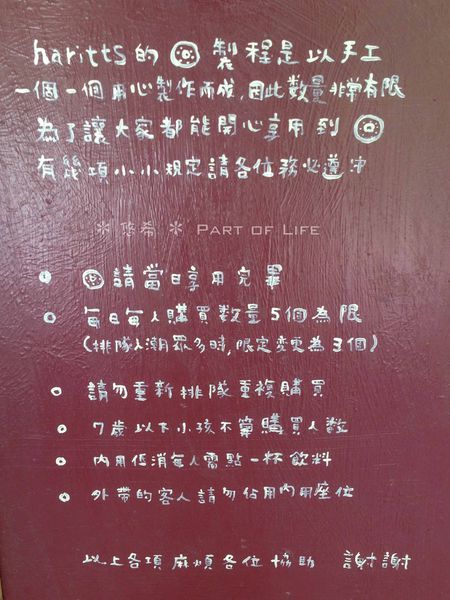 haritts的 製程是以手工
一個一個用心製作而成,因此數量非常有限
為了讓大家都能開心享用到
有幾項小小規定請各位務必遵守
悠希 PART OF LIFE
請當日享用完畢
每日每人購買數量5個為限
(排隊人潮眾多時,限定變更為3個)
請勿重新排隊重複購買
7歲以下小孩不算購買人数
內用低消每人需點一杯飲料
外帶的客人請勿佔用內用座位
以上各項麻煩各位協助 謝謝